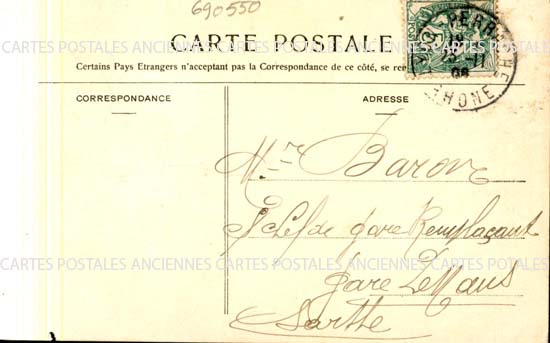 690550
CARTE POSTALE
Certains Pays Etrangers n'acceptant pas la Correspondance de ce côté, se ren
CORRESPONDANCE
ADRESSE
PERRACHE
RHONE
18
11
06
Mr Baron
S/Chef de gare Remplaçant
gare Le Mans
Sarthe
CARTES POSTALES ANCIENNES CARTES POSTALES ANCIENNES CARTES POSTALES ANCIENNES
CARTES POSTALES ANCIENNES CARTES POSTALES ANCIENNES CARTES POSTALES ANCIENNES